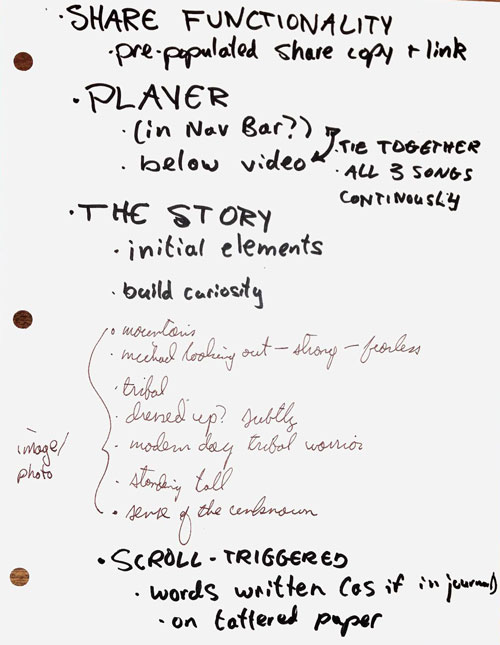 · SHARE FUNCTIONALITY
· pre-populated share copy + link
· PLAYER
· (in Nav Bar?)
· below video
· TIE TOGETHER
· ALL 3 SONGS
CONTINOUSLY
· THE STORY
· initial elements
· build curiosity
image/
photo
· mountains
· michael looking out – strong – fearless
· tribal
· dressed up? subtly
· modern day tribal warrior
· standing tall
· sense of the unknown
· SCROLL-TRIGGERED
· words written (as if in journal)
· on tattered paper